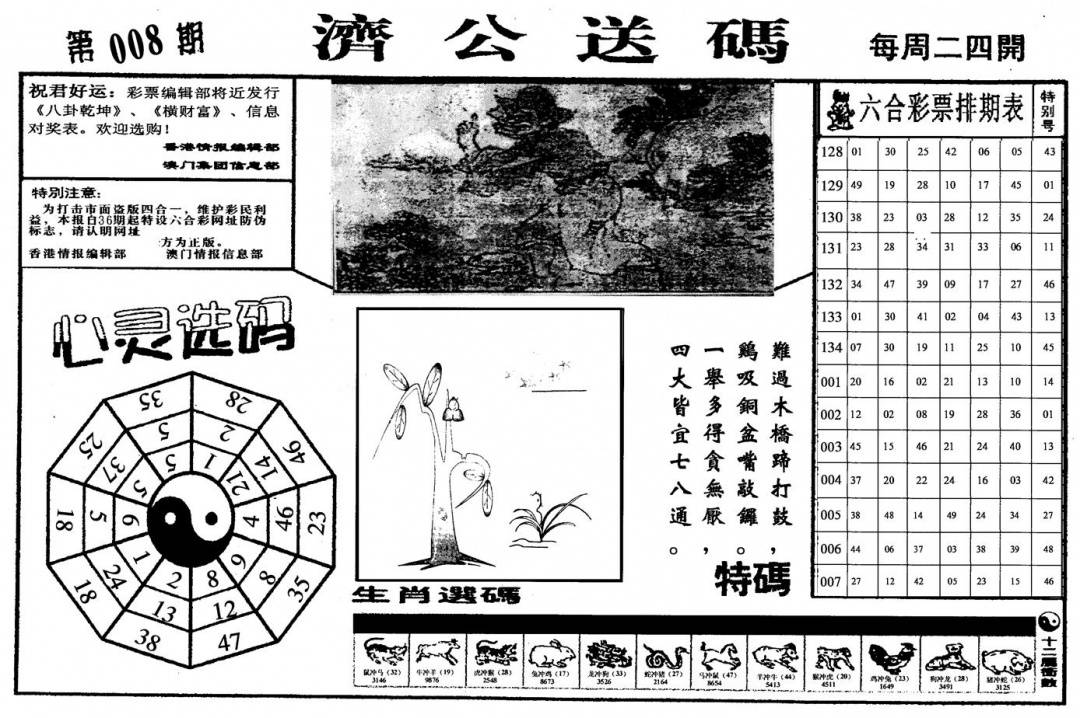 第008期
濟公送碼
每周二四開
祝君好运：彩票编辑部将近发行
《八卦乾坤》、《横财富》、信息
对奖表。欢迎选购！
香港情报编辑部
澳门集团信息部
特别注意：
为打击市面盗版四合一，维护彩民利
益，本报自36期起特设六合彩网址防伪
标志，请认明网址
方为正版。
香港情报编辑部 澳门情报信息部
心灵选码
35 28 46 23 35 47 38 18 18 25
5 2 14 46 8 12 13 24 5 37
5 1 21 4 9 8 2 1 6 5
難過木橋蹄打鼓，
鷄吸銅盆嘴敲鑼。
一舉多得貪無厭，
四大皆宜七八通。
特碼
生肖選碼
六合彩票排期表 特别号
128 01 30 25 42 06 05 43
129 49 19 28 10 17 45 01
130 38 23 03 28 12 35 24
131 23 28 34 31 33 06 11
132 34 47 39 09 17 27 46
133 01 30 41 02 04 43 13
134 07 30 19 11 25 10 45
001 20 16 02 21 13 10 14
002 12 02 08 19 28 36 01
003 45 15 46 21 24 40 13
004 37 20 22 24 16 03 42
005 38 48 14 49 24 34 27
006 44 06 37 03 38 39 48
007 27 12 42 05 23 15 46
鼠冲马（32） 牛冲羊（19） 虎冲猴（28） 兔冲鸡（17） 龙冲狗（33） 蛇冲猪（27） 马冲鼠（47） 羊冲牛（44） 猴冲虎（20） 鸡冲兔（23） 狗冲龙（28） 猪冲蛇（26）
3146 9876 2548 8673 3526 2164 8654 5413 4511 1649 3491 3125
十二属衝數